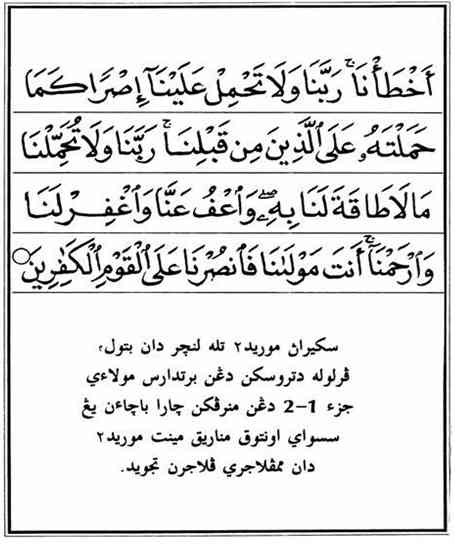 أَخْطَأْنَا ۚ رَبَّنَا وَلَا تَحْمِلْ عَلَيْنَآ إِصْرًا كَمَا
حَمَلْتَهُۥ عَلَى ٱلَّذِينَ مِن قَبْلِنَا ۚ رَبَّنَا وَلَا تُحَمِّلْنَا
مَا لَا طَاقَةَ لَنَا بِهِۦ ۖ وَٱعْفُ عَنَّا وَٱغْفِرْ لَنَا
وَٱرْحَمْنَآ ۚ أَنتَ مَوْلَىٰنَا فَٱنصُرْنَا عَلَى ٱلْقَوْمِ ٱلْكَٰفِرِينَ
سکيراڽ موريد٢ تله لنچر دان بتول،
ڤرلوله دتروسکن دڠن برتدارس مولاءي
جزء 1–2 دڠن منرڤکن چارا باچاءن يڠ
سسواي اونتوق مناريق مينت موريد٢
دان ممڤلاجري ڤلاجرن تجويد.